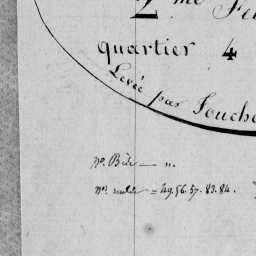 2 me Fe
quartier 4
Levée par Fouche
nos. Bis — „.
nos. = 49.56.57.83.84.